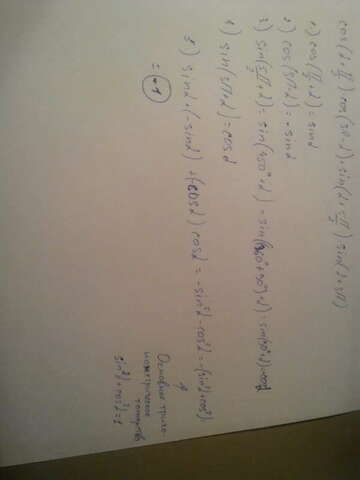 cos(α + π/2) cos(3π - α) + sin(α + 5π/2) sin(α + 5π)
1) cos(π/2 + α) = sinα
2) cos(3π - α) = -sinα
3) sin(5π/2 + α) = sin(450° + α) = sin(360° + 90° + α) = sin(90° + α) = cosα
4) sin(5π + α) = cosα
5) sinα · (-sinα) + (-cosα) cosα = -sin²α - cos²α = -(sin²α + cos²α) =
= -1
Основное триго-
нометрическое
тождество
sin²α + cos²α = 1